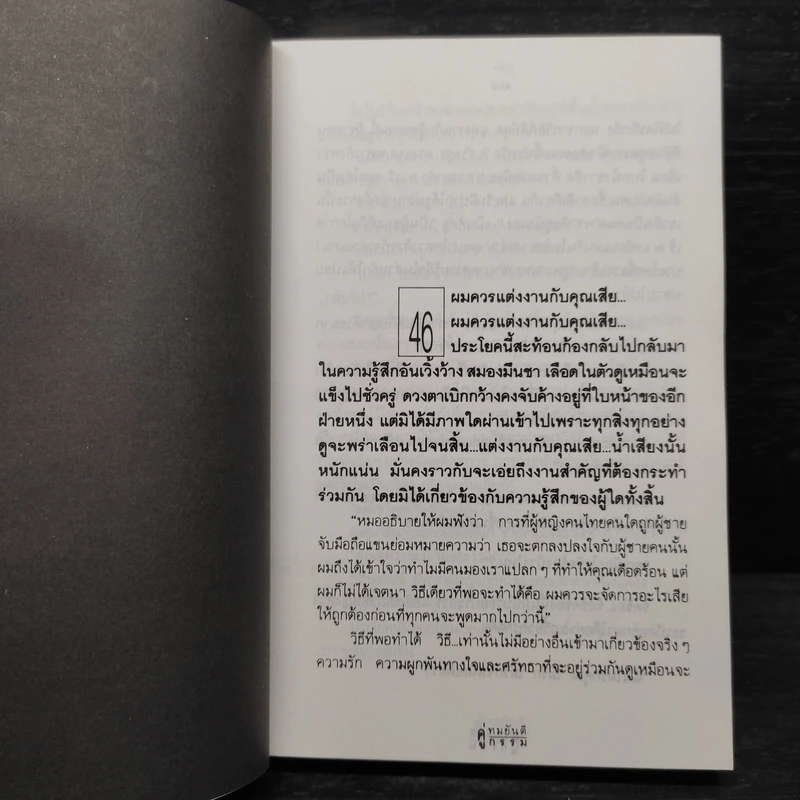 46
ผมควรแต่งงานกับคุณเสีย...
ผมควรแต่งงานกับคุณเสีย...
ประโยคนี้สะท้อนก้องกลับไปกลับมา
ในความรู้สึกอันเวิ้งว้าง สมองมึนชา เลือดในตัวดูเหมือนจะ
แข็งไปชั่วครู่ ดวงตาเบิกกว้างคงจับค้างอยู่ที่ใบหน้าของอีก
ฝ่ายหนึ่ง แต่มิได้มีภาพใดผ่านเข้าไปเพราะทุกสิ่งทุกอย่าง
ดูจะพร่าเลือนไปจนสิ้น...แต่งงานกับคุณเสีย...น้ำเสียงนั้น
หนักแน่น มั่นคงราวกับจะเอ่ยถึงงานสำคัญที่ต้องกระทำ
ร่วมกัน โดยมิได้เกี่ยวข้องกับความรู้สึกของผู้ใดทั้งสิ้น
“หมออธิบายให้ผมฟังว่า การที่ผู้หญิงคนไทยคนใดถูกผู้ชาย
จับมือถือแขนย่อมหมายความว่า เธอจะตกลงปลงใจกับผู้ชายคนนั้น
ผมถึงได้เข้าใจว่าทำไมมีคนมองเราแปลก ๆ ที่ทำให้คุณเดือดร้อน แต่
ผมก็ไม่ได้เจตนา วิธีเดียวที่พอจะทำได้คือ ผมควรจะจัดการอะไรเสีย
ให้ถูกต้องก่อนที่ทุกคนจะพูดมากไปกว่านี้”
วิธีที่พอทำได้ วิธี...เท่านั้นไม่มีอย่างอื่นเข้ามาเกี่ยวข้องจริง ๆ
ความรัก ความผูกพันทางใจและศรัทธาที่จะอยู่ร่วมกันดูเหมือนจะ
คู่กรรม
ทมยันตี